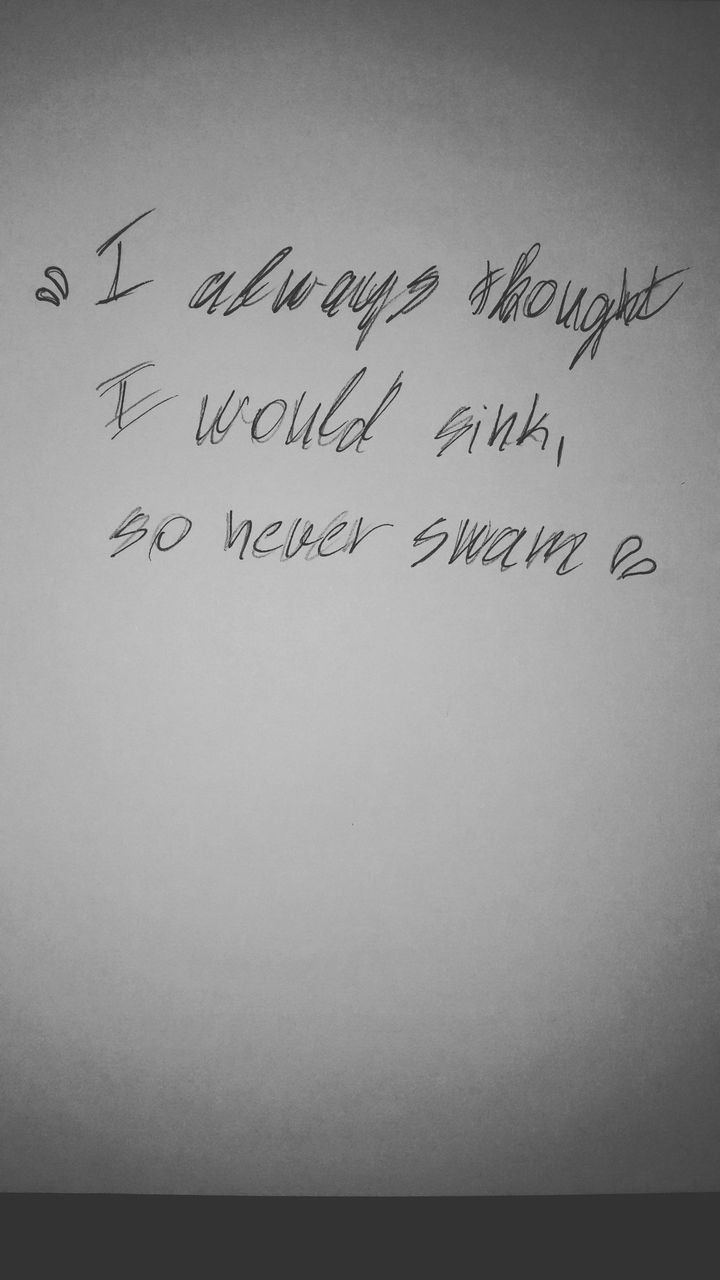 "I always thought
I would sink,
so never swam"